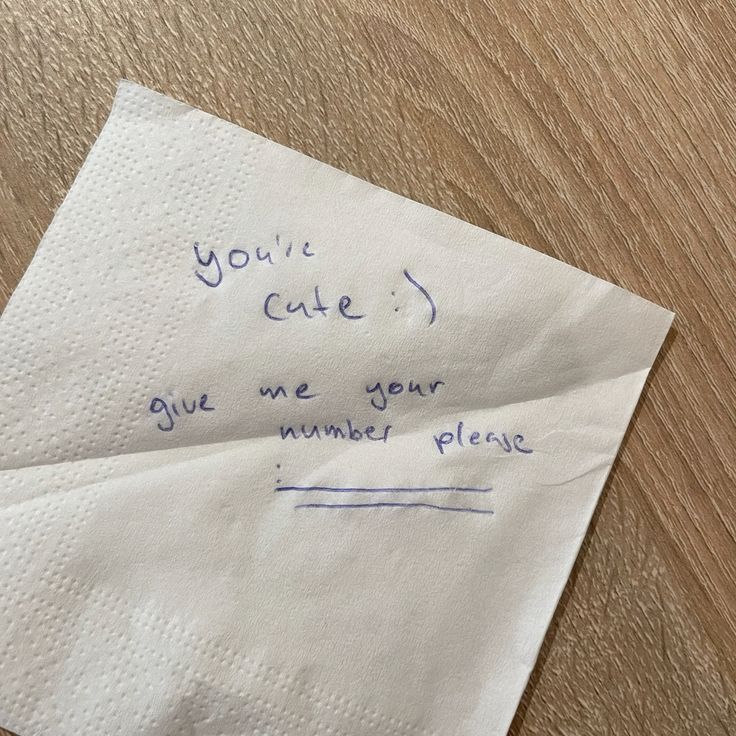 you're
cute :)
give me your
number please
: